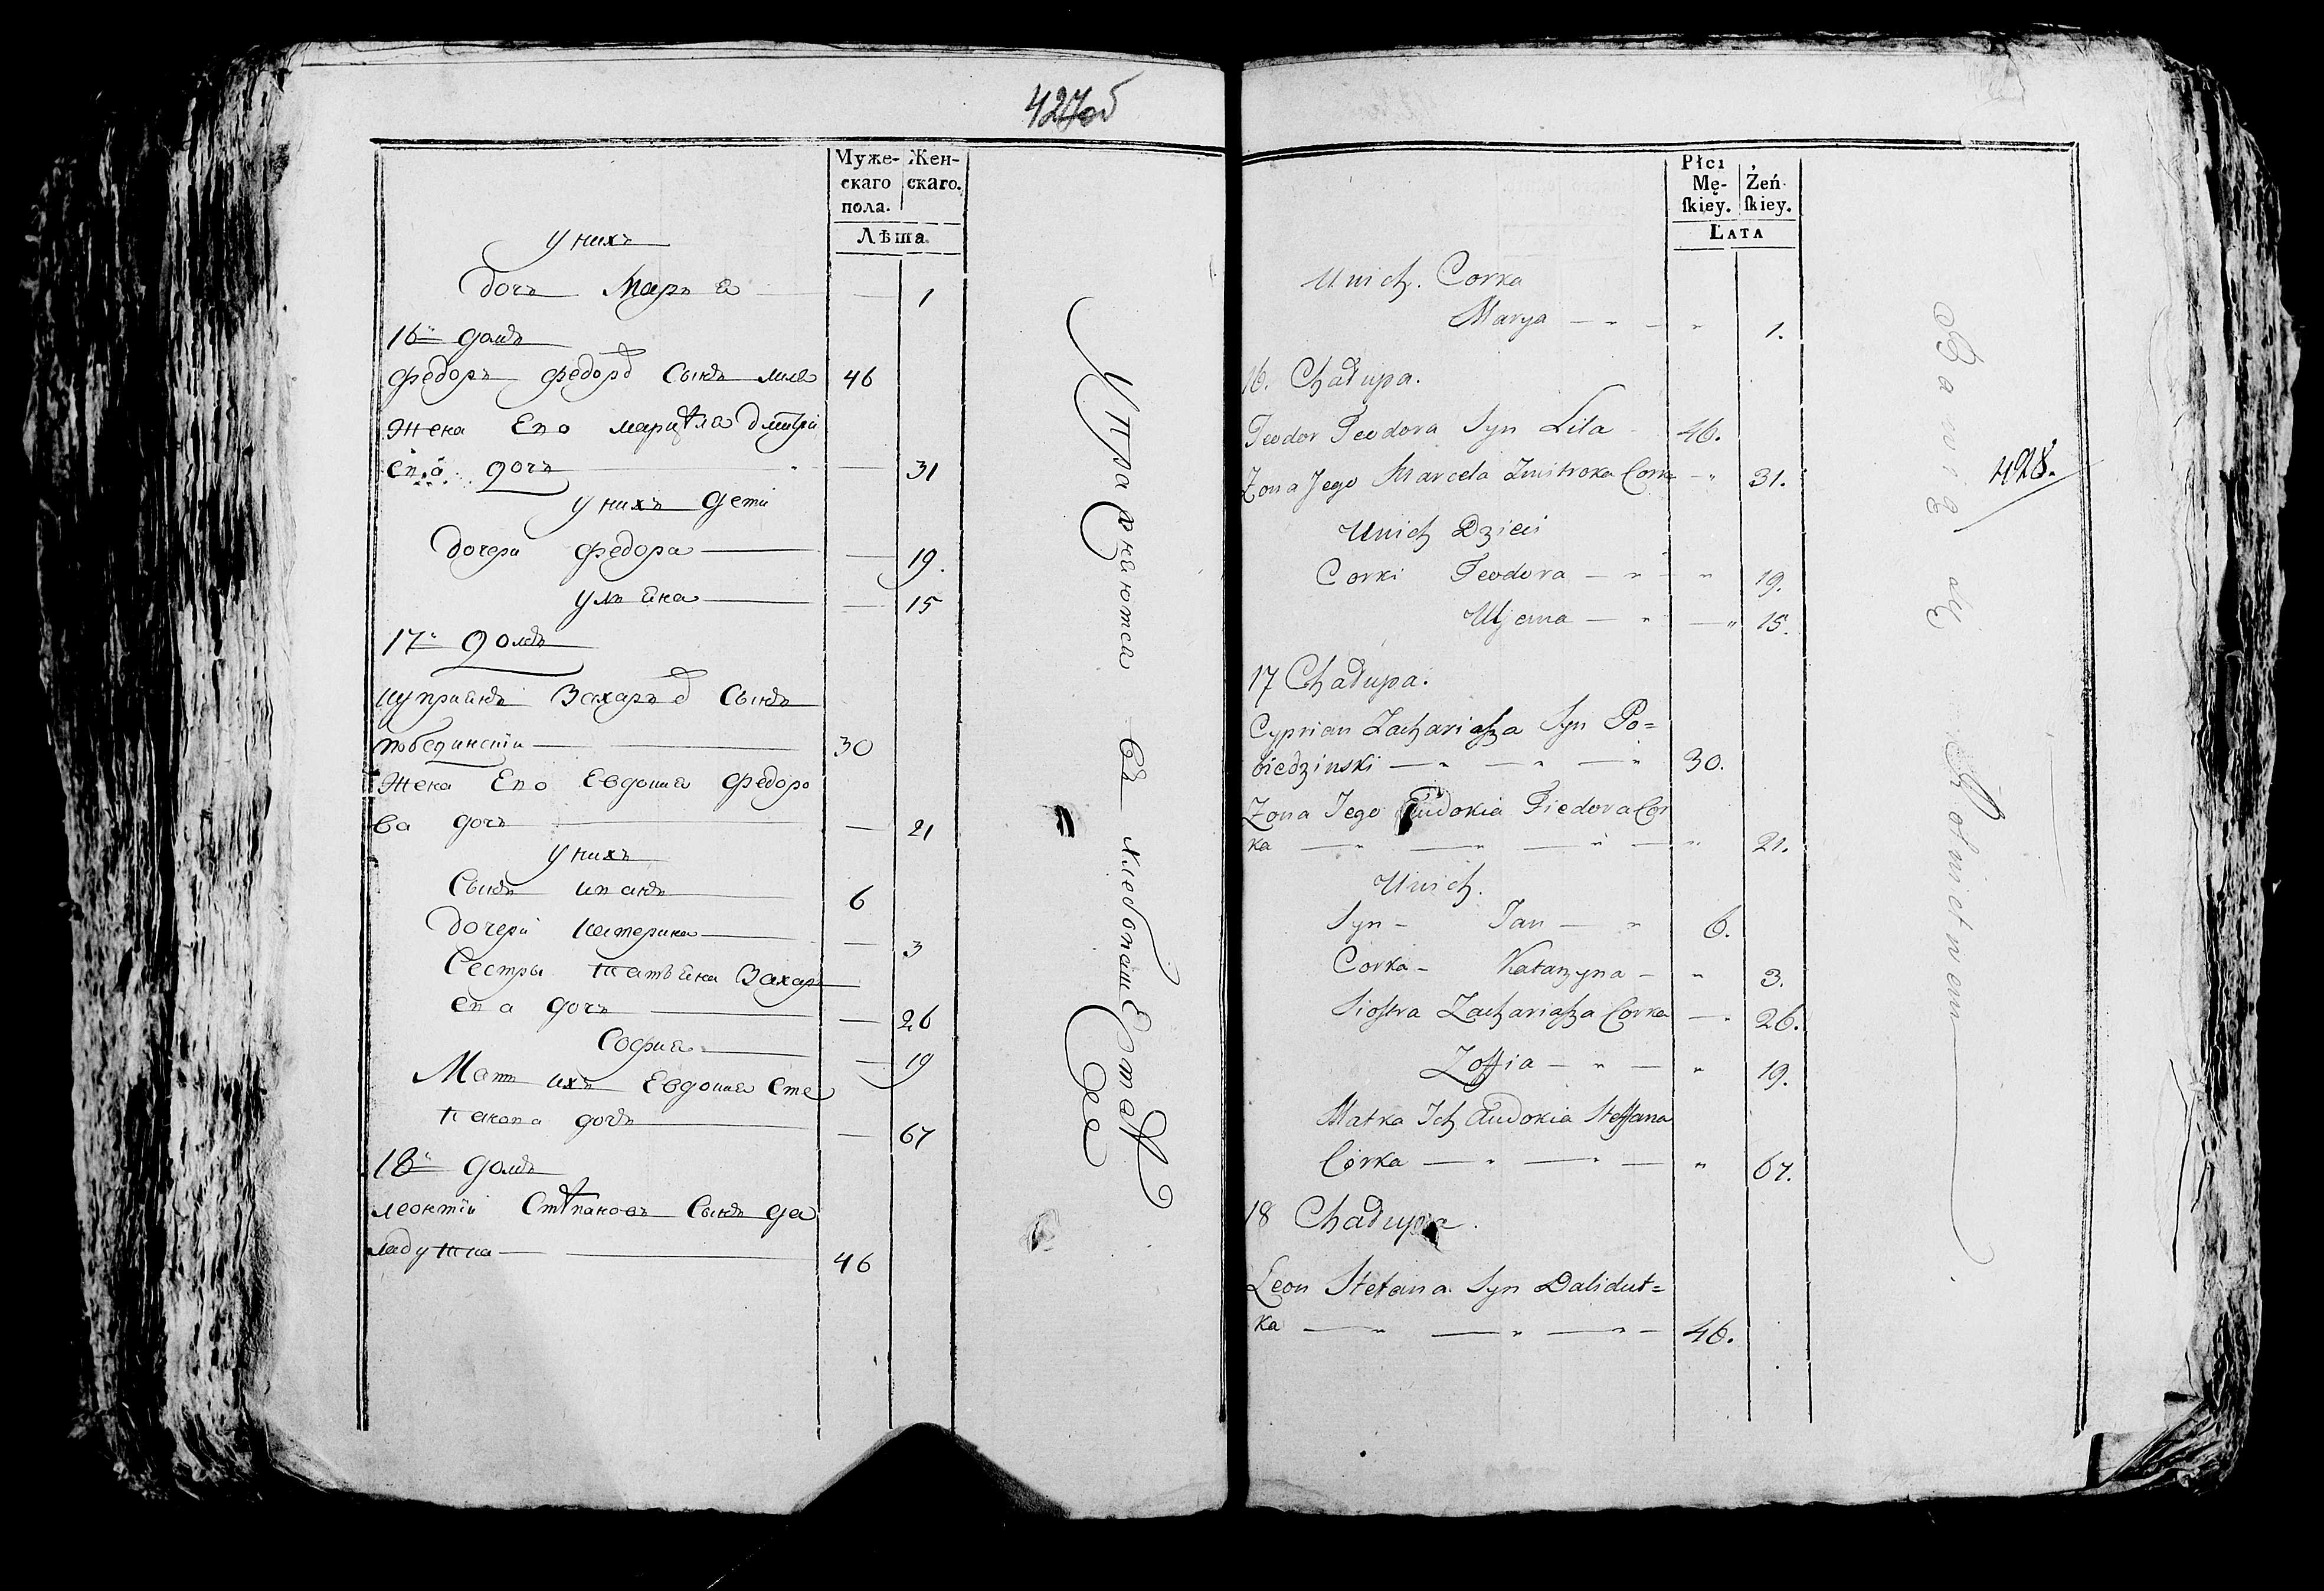 427об
Муже- Жен-
скаго скаго.
пола.
Лѣта
у нихъ
дочь Марья — 1
16й домъ
Федоръ Федоров Сынъ лила 46
Жена Его марцѣла дмитрі
ева дочь — 31
у нихъ дети
дочери федора — 19.
ульяна — 15
17й домъ
Цупріянъ Захарьев Сынъ
побединскій 30
Жена Его Евдокия федоро
ва дочь — 21
у нихъ
Сынъ иванъ 6
дочери катерина — 3
Сестры татьяна Захарь
ева дочь — 26
София — 19
Мать ихъ Евдокия Сте
панова дочь — 67
18й домъ
леонтій Стѣпановъ Сынъ да
лидутка 46
Упражняются въ хлебопашестве
Płci
Mę- Żeń-
ſkiey. ſkiey.
LATA
Unich. Corka
Marya — " — " 1.
16. Chałupa.
Teodor Teodora Syn Lila 46.
Zona Jego Marcela Zmitroka Corka — " 31.
Unich Dzieci
Corki Teodora — " — " 19.
Uljanna — " — " 15.
17 Chałupa.
Cyprian Zachariaſza Syn Po=
biedzinski — " — " — " 30.
Zona Jego Audokia Fiedora Cor
ka — " — " — " — " 21.
Unich.
Syn — Jan — " 6.
Corka — Katarzyna — " 3.
Sioſtra Zachariaſza Corka — " 26.
Zoffia — " — " 19.
Matka Ich Audokia Steffana
Corka — " — " — " 67.
18 Chałupa.
Leon Stefana Syn Dalidut=
ka — " — " — " — 46.
Bawią się Rolnictwem
428.